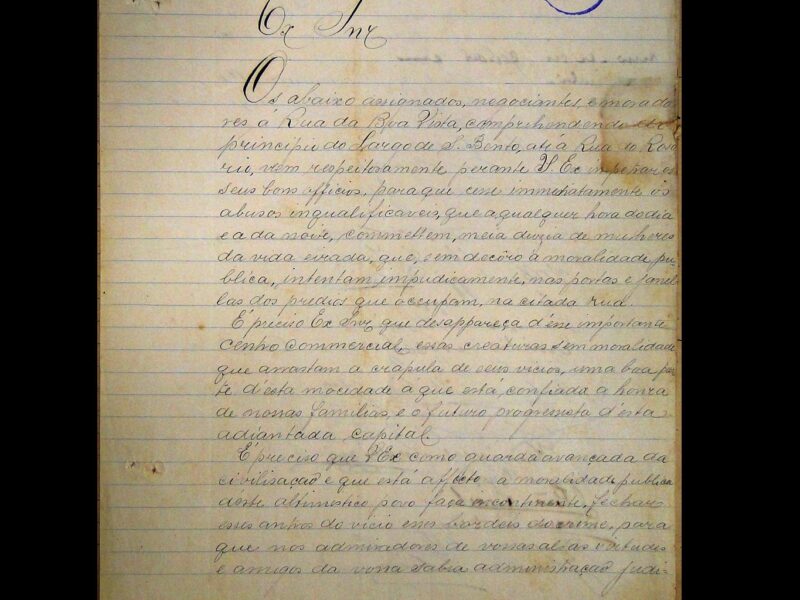 Ex Snr
Os abaixo assignados, negociantes, e morado
res á Rua da Boa Vista, comprehendendo do
principio do Largo de S. Bento, até á Rua do Rosa
rio, vem respeitosamente perante V. Ex impetrar os
seus bons officios, para que cesse immediatamente os
abusos inqualificaveis, que a qualquer hora do dia
e a da noite, commettem, meia duzia de mulheres
da vida airada, que, sem decôro a moralidade pu
blica, intentam impudicamente, nas portas e janel
las dos predios que occupam, na citada rua.
É preciso Ex Snr que desappareça d'esse importante
centro commercial, essas creaturas sem moralidade
que arrastam a crapula de seus vicios, uma boa par
te d'esta mocidade a que está confiada a honra
de nossas familias, e o futuro progressista d'esta
adiantada capital.
É preciso que V Ex como guarda avançada da
civilisação e que está affecto a moralidade publica
deste povo faça incontinente, fechar
esses antros do vicio esses bordeis do crime, para
que nos admiradores de vossas altas virtudes
e amigos da vossa sabia administração judi-